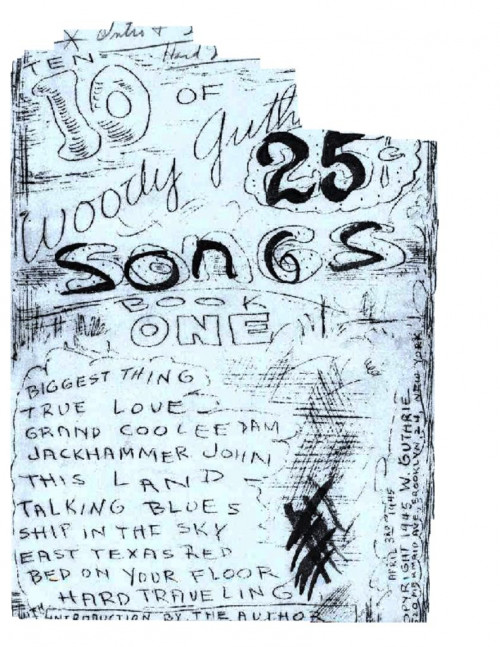 * Intro &
TEN
10 OF
Woody Guth
25¢
SONGS
BOOK
ONE
BIGGEST THING
TRUE LOVE
GRAND COOLEE DAM
JACKHAMMER JOHN
THIS LAND
TALKING BLUES
SHIP IN THE SKY
EAST TEXAS RED
BED ON YOUR FLOOR
HARD TRAVELING
WITH INTRODUCTION BY THE AUTHOR
APRIL 3RD 1945
COPYRIGHT 1945 W. GUTHRIE
MERMAID AVE. BROOKLYN, 24, NEW YORK